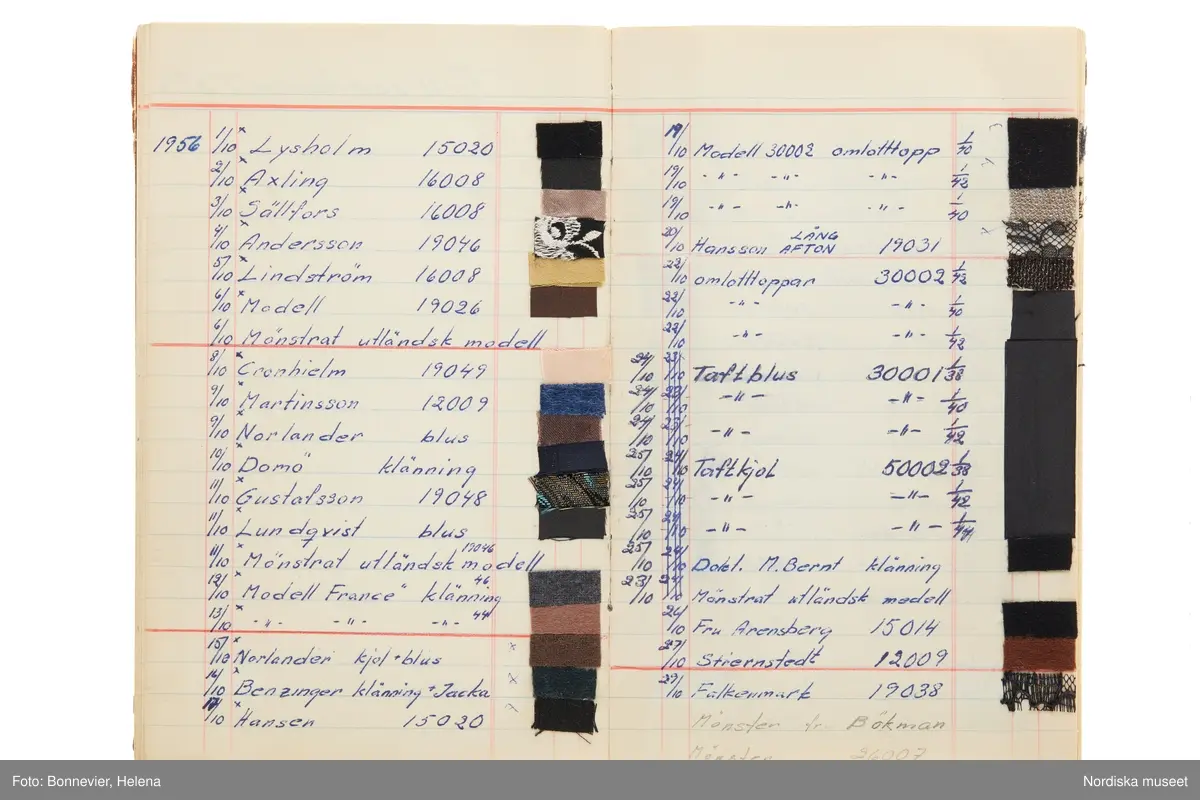 1956 1/10 x Lysholm 15020
2/10 x Axling 16008
3/10 x Sällfors 16008
4/10 x Andersson 19046
5/10 x Lindström 16008
6/10 x Modell 19026
6/10 Mönstrat utländsk modell
8/10 x Cronhielm 19049
9/10 x Martinsson 12009
9/10 x Norlander blus
10/10 x Domö klänning
11/10 x Gustafsson 19048
11/10 x Lundqvist blus
11/10 x Mönstrat utländsk modell 19046
12/10 x Modell France" klänning 46
13/10 x -"- -"- -"- 44
15/10 x Norlander kjol+blus x
16/10 x Benzinger klänning+Jacka x
17/10 x Hansen 15020
19/10 Modell 30002 omlottopp 1/40
19/10 -"- -"- -"- 1/42
19/10 -"- -"- -"- 1/40
20/10 Hansson LÅNG AFTON 19031
22/10 omlottoppar 30002 1/42
22/10 -"- -"- 1/40
22/10 -"- -"- 1/42
24/10 23/10 Taftblus 30001 1/38
24/10 23/10 -"- -"- 1/40
24/10 23/10 -"- -"- 1/42
25/10 24/10 Taftkjol 50002 1/38
25/10 24/10 -"- -"- 1/42
25/10 24/10 -"- -"- 1/44
25/10 24/10 Dokt. M. Bernt klänning
23/10 24/10 Mönstrat utländsk modell
26/10 Fru Arensberg 15014
27/10 Stiernstedt 12009
29/10 Falkenmark 19038
Mönster fr. Bökman
Mönster 26007
Foto: Bonnevier, Helena
Nordiska museet